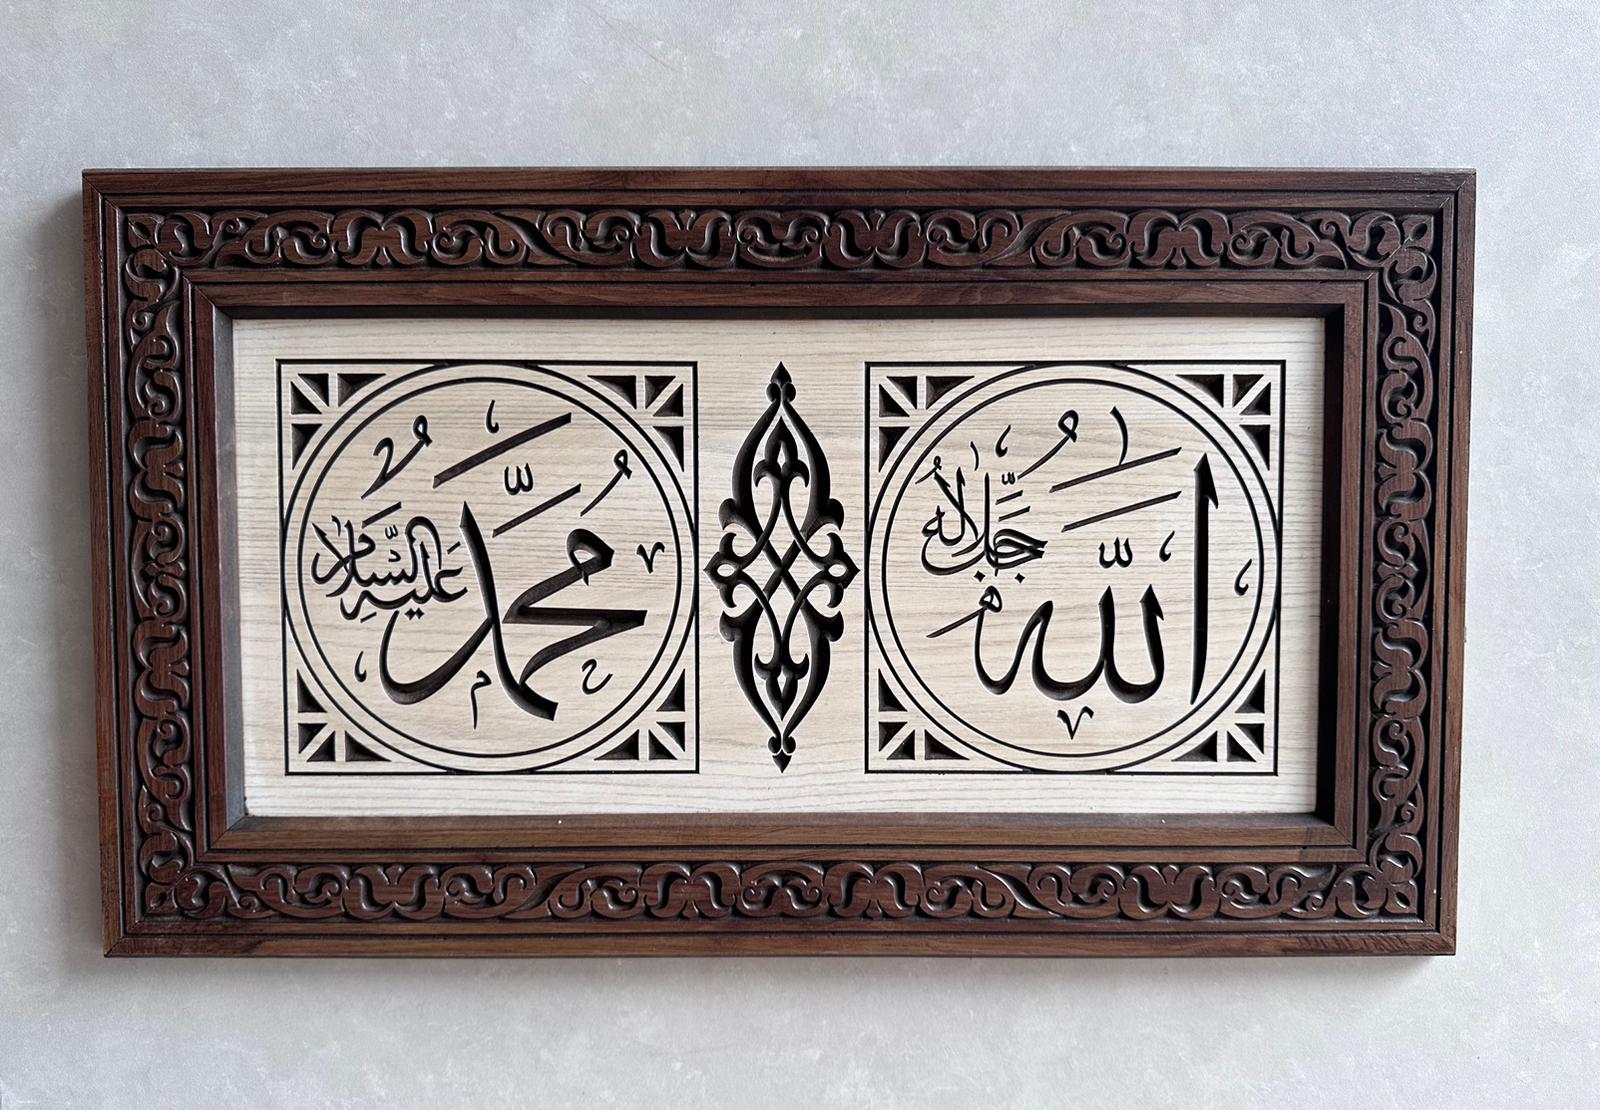 اللّٰهُ جَلَّ جَلَالُهُ
مُحَمَّدٌ عَلَيْهِ السَّلَامُ